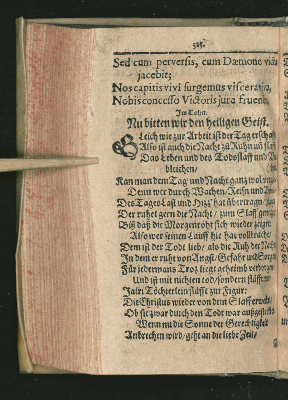 525.
Sed cum perversis, cum Dæmone victa
jacebit;
Nos capitis vivi surgemus viscera,
Nobis concesso Victoris jura fruent.
Im Tohn.
Nu bitten wir den heiligen Geist.
Gleich wie zur Arbeit ist der Tag erschaf
So ist auch die Nacht zu Ruhn un
Das Leben und des Todsſlaff
bleichen/
Kan man dem Tag und Nacht gantz wol
Denn wer durch Wachen/
Des Tages Last und Hitz' hat übertragen/
Der ruhet gern die Nacht/ zum Slaff
Biß daß die Morgenröht sich wieder zeiget:
Also wer seinen Lauff hie hat vollbracht/
Dem ist der Todt lieb/ als die Ruh der Nacht
In dem er ruht von Angst/ Gefahr und Sorgen
Für jedermans Trotz liegt geheimb verborgen
Und ist mit nichten tod/ sondern slåfft/
Jairi Töchterlein slåfft zur Figur:
Die Christus wieder von dem Slaff erwekt/
Ob sie zwar durch den Todt war außgestrekt
Wenn nu die Sonne der Gerechtigkeit
Anbrechen wird/ geht an die liebe Zeit/